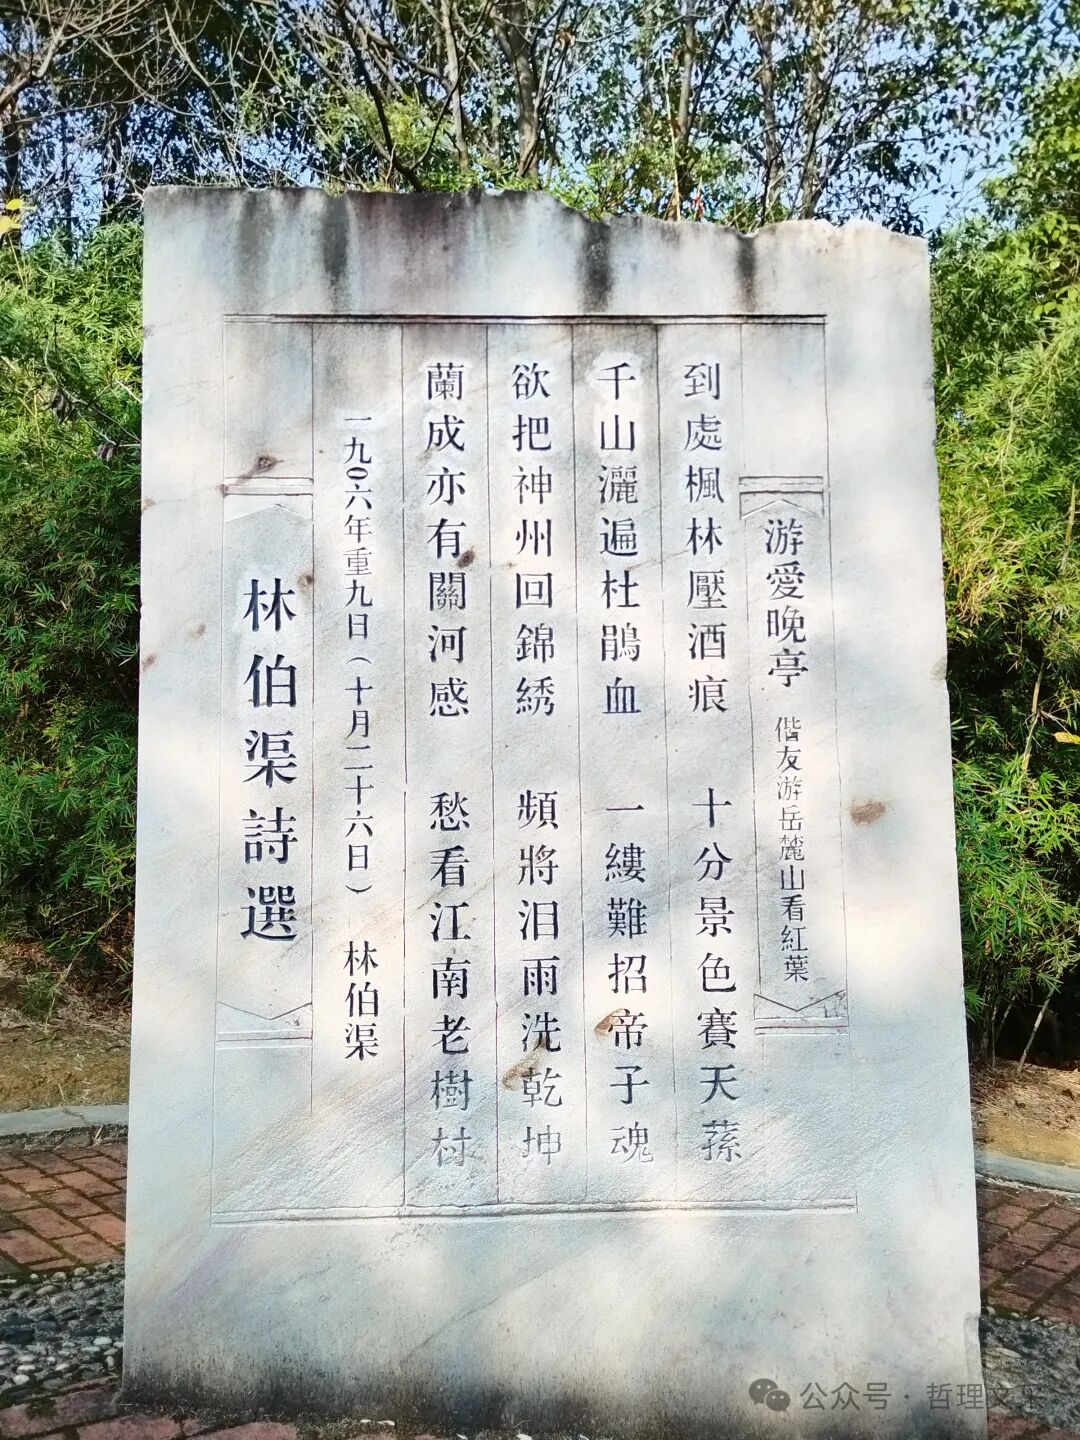 游愛晚亭 偕友游岳麓山看紅葉
到處楓林壓酒痕 十分景色賽天蓀
千山灑遍杜鵑血 一縷難招帝子魂
欲把神州回錦綉 頻將泪雨洗乾坤
蘭成亦有關河感 愁看江南老樹村
一九0六年重九日(十月二十六日) 林伯渠
林伯渠詩選
公众号·哲理文